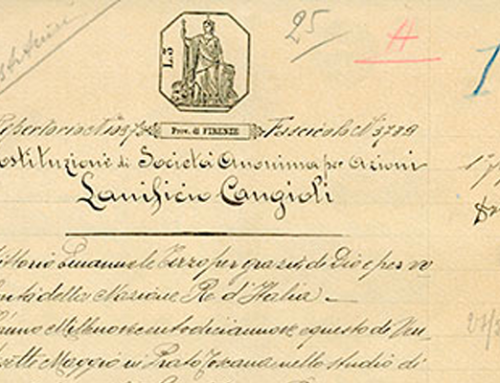 25
A
L.3
Prov. di FIRENZE
Fascicolo N. 3789
ostituzione di Società Anonima per Azioni
Lanificio Cangioli
ittorio Emanuele Terzo per grazia di Dio e per vo
lontà della Nazione Re d'Italia
anno Millenovecentodiciannove e questo dì Ven
tisette Maggio in Prato Toscana nello studio di